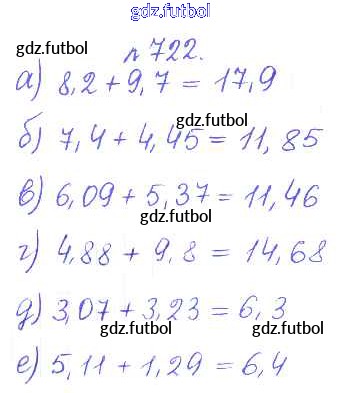 gdz.futbol
№ 722.
gdz.futbol
а) 8,2 + 9,7 = 17,9
gdz.futbol
б) 7,4 + 4,45 = 11,85
в) 6,09 + 5,37 = 11,46
gdz.futbol
г) 4,88 + 9,8 = 14,68
д) 3,07 + 3,23 = 6,3
gdz.futbol gdz.futbol
е) 5,11 + 1,29 = 6,4